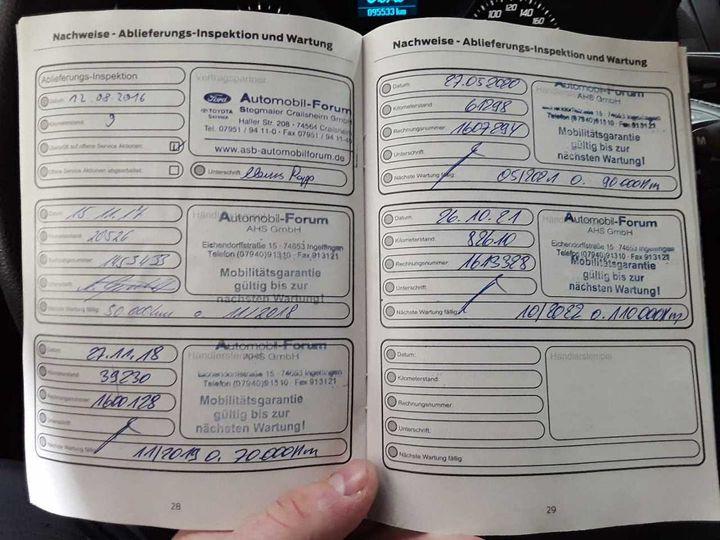 095533 km
100
120
140
160
Nachweise - Ablieferungs-Inspektion und Wartung
Ablieferungs-Inspektion
Datum: 12.08.2016
Kilometerstand: 9
Überprüft auf offene Service Aktionen:
Offene Service Aktionen abgearbeitet:
Vertragspartner
Ford
TOYOTA
Service
Automobil-Forum
Stegmaier Crailsheim GmbH
Haller Str. 208 - 74564 Crailsheim
Tel. 07951 / 94 11-0 - Fax 07951 / 94 11-44
www.asb-automobilforum.de
Unterschrift:
Datum: 15.11.17
Kilometerstand: 20526
Rechnungsnummer: 1453433
Unterschrift:
Nächste Wartung fällig: 50.000km o. 11/2018
Automobil-Forum
AHS GmbH
Eichendorffstraße 15 · 74653 Ingelfingen
Telefon (07940) 91310 · Fax 913121
Mobilitätsgarantie
gültig bis zur
nächsten Wartung!
Datum: 27.11.18
Kilometerstand: 39230
Rechnungsnummer: 1600128
Unterschrift:
Nächste Wartung fällig: 11/2019 o. 70.000km
Händlerstempel
Automobil-Forum
AHS GmbH
Eichendorffstraße 15 · 74653 Ingelfingen
Telefon (07940) 91310 · Fax 913121
Mobilitätsgarantie
gültig bis zur
nächsten Wartung!
28
Nachweise - Ablieferungs-Inspektion und Wartung
Datum: 27.05.2020
Kilometerstand: 61898
Rechnungsnummer: 1607894
Unterschrift:
Nächste Wartung fällig: 05/2021 o. 90.000km
Automobil-Forum
AHS GmbH
15 · 74653 Ingelfingen
Telefon (07940) 91310 · Fax 913121
Mobilitätsgarantie
gültig bis zur
nächsten Wartung!
Datum: 26.10.21
Kilometerstand: 82610
Rechnungsnummer: 1613328
Unterschrift:
Nächste Wartung fällig: 10/2022 o. 110.000km
Automobil-Forum
AHS GmbH
Eichendorffstraße 15 · 74653 Ingelfingen
Telefon (07940) 91310 · Fax 913121
Mobilitätsgarantie
gültig bis zur
nächsten Wartung!
Datum:
Kilometerstand:
Rechnungsnummer:
Unterschrift:
Nächste Wartung fällig:
Händlerstempel
29